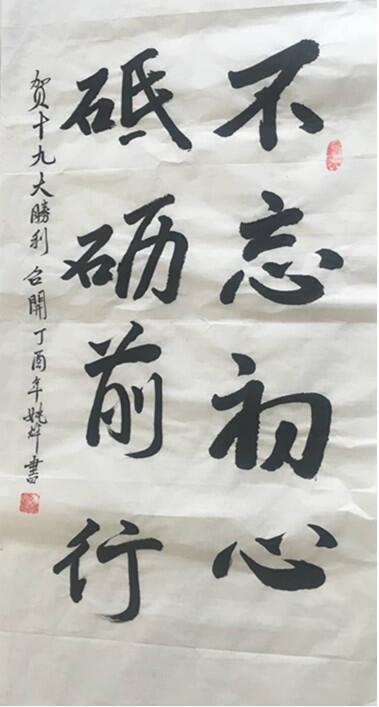 不忘初心
砥砺前行
贺十九大勝利台開丁酉年姚烨書